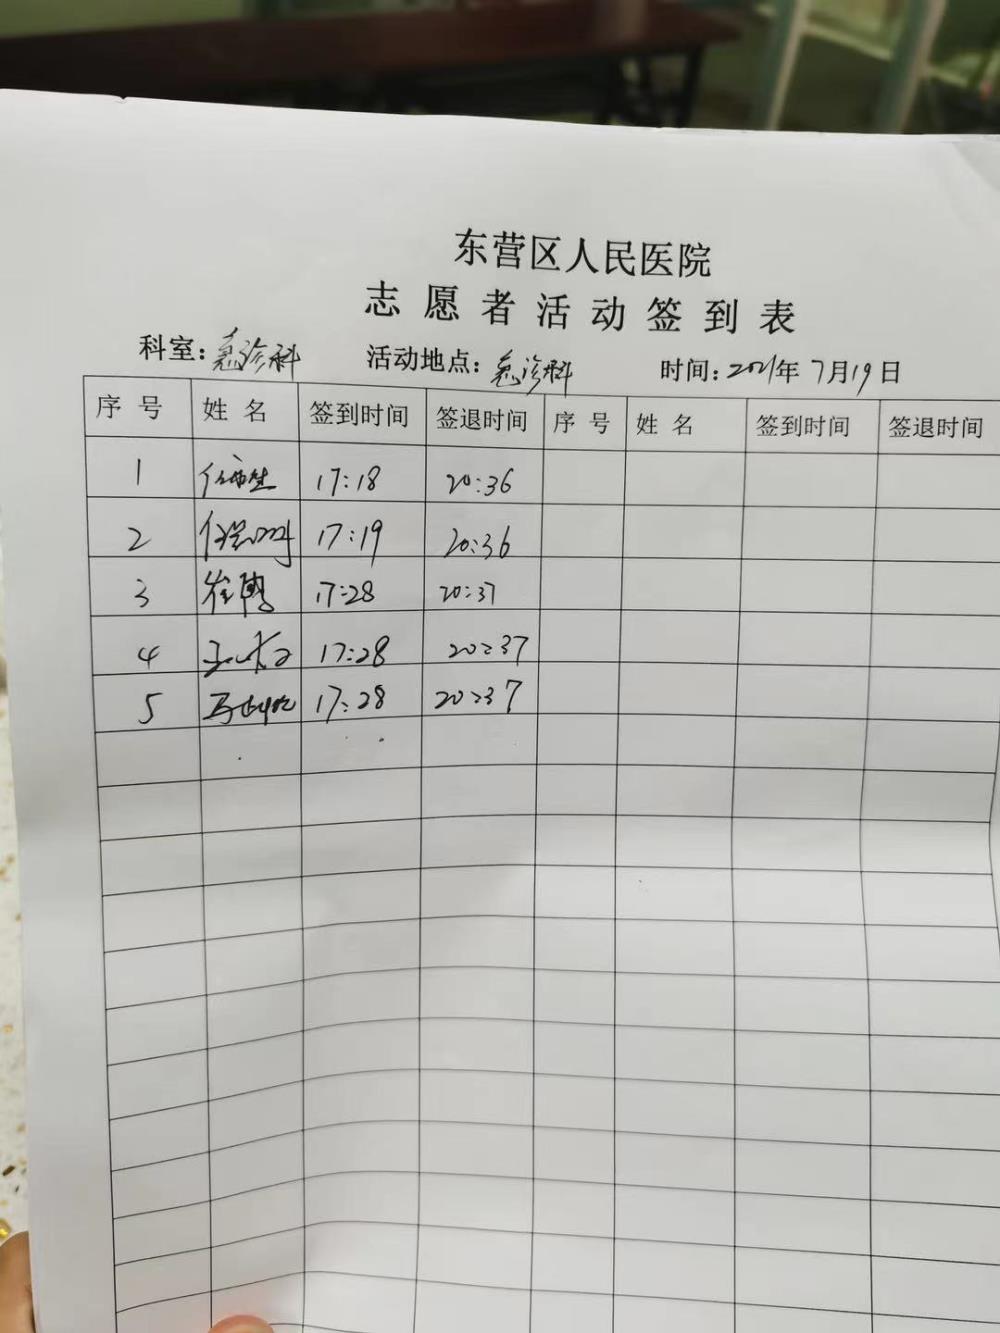 东营区人民医院
志愿者活动签到表
科室：急诊科 活动地点：急诊科 时间：2021年7月19日
序号 姓名 签到时间 签退时间 序号 姓名 签到时间 签退时间
1 17:18 20:36
2 17:19 20:36
3 崔 17:28 20:37
4 17:28 20:37
5 马 17:28 20:37